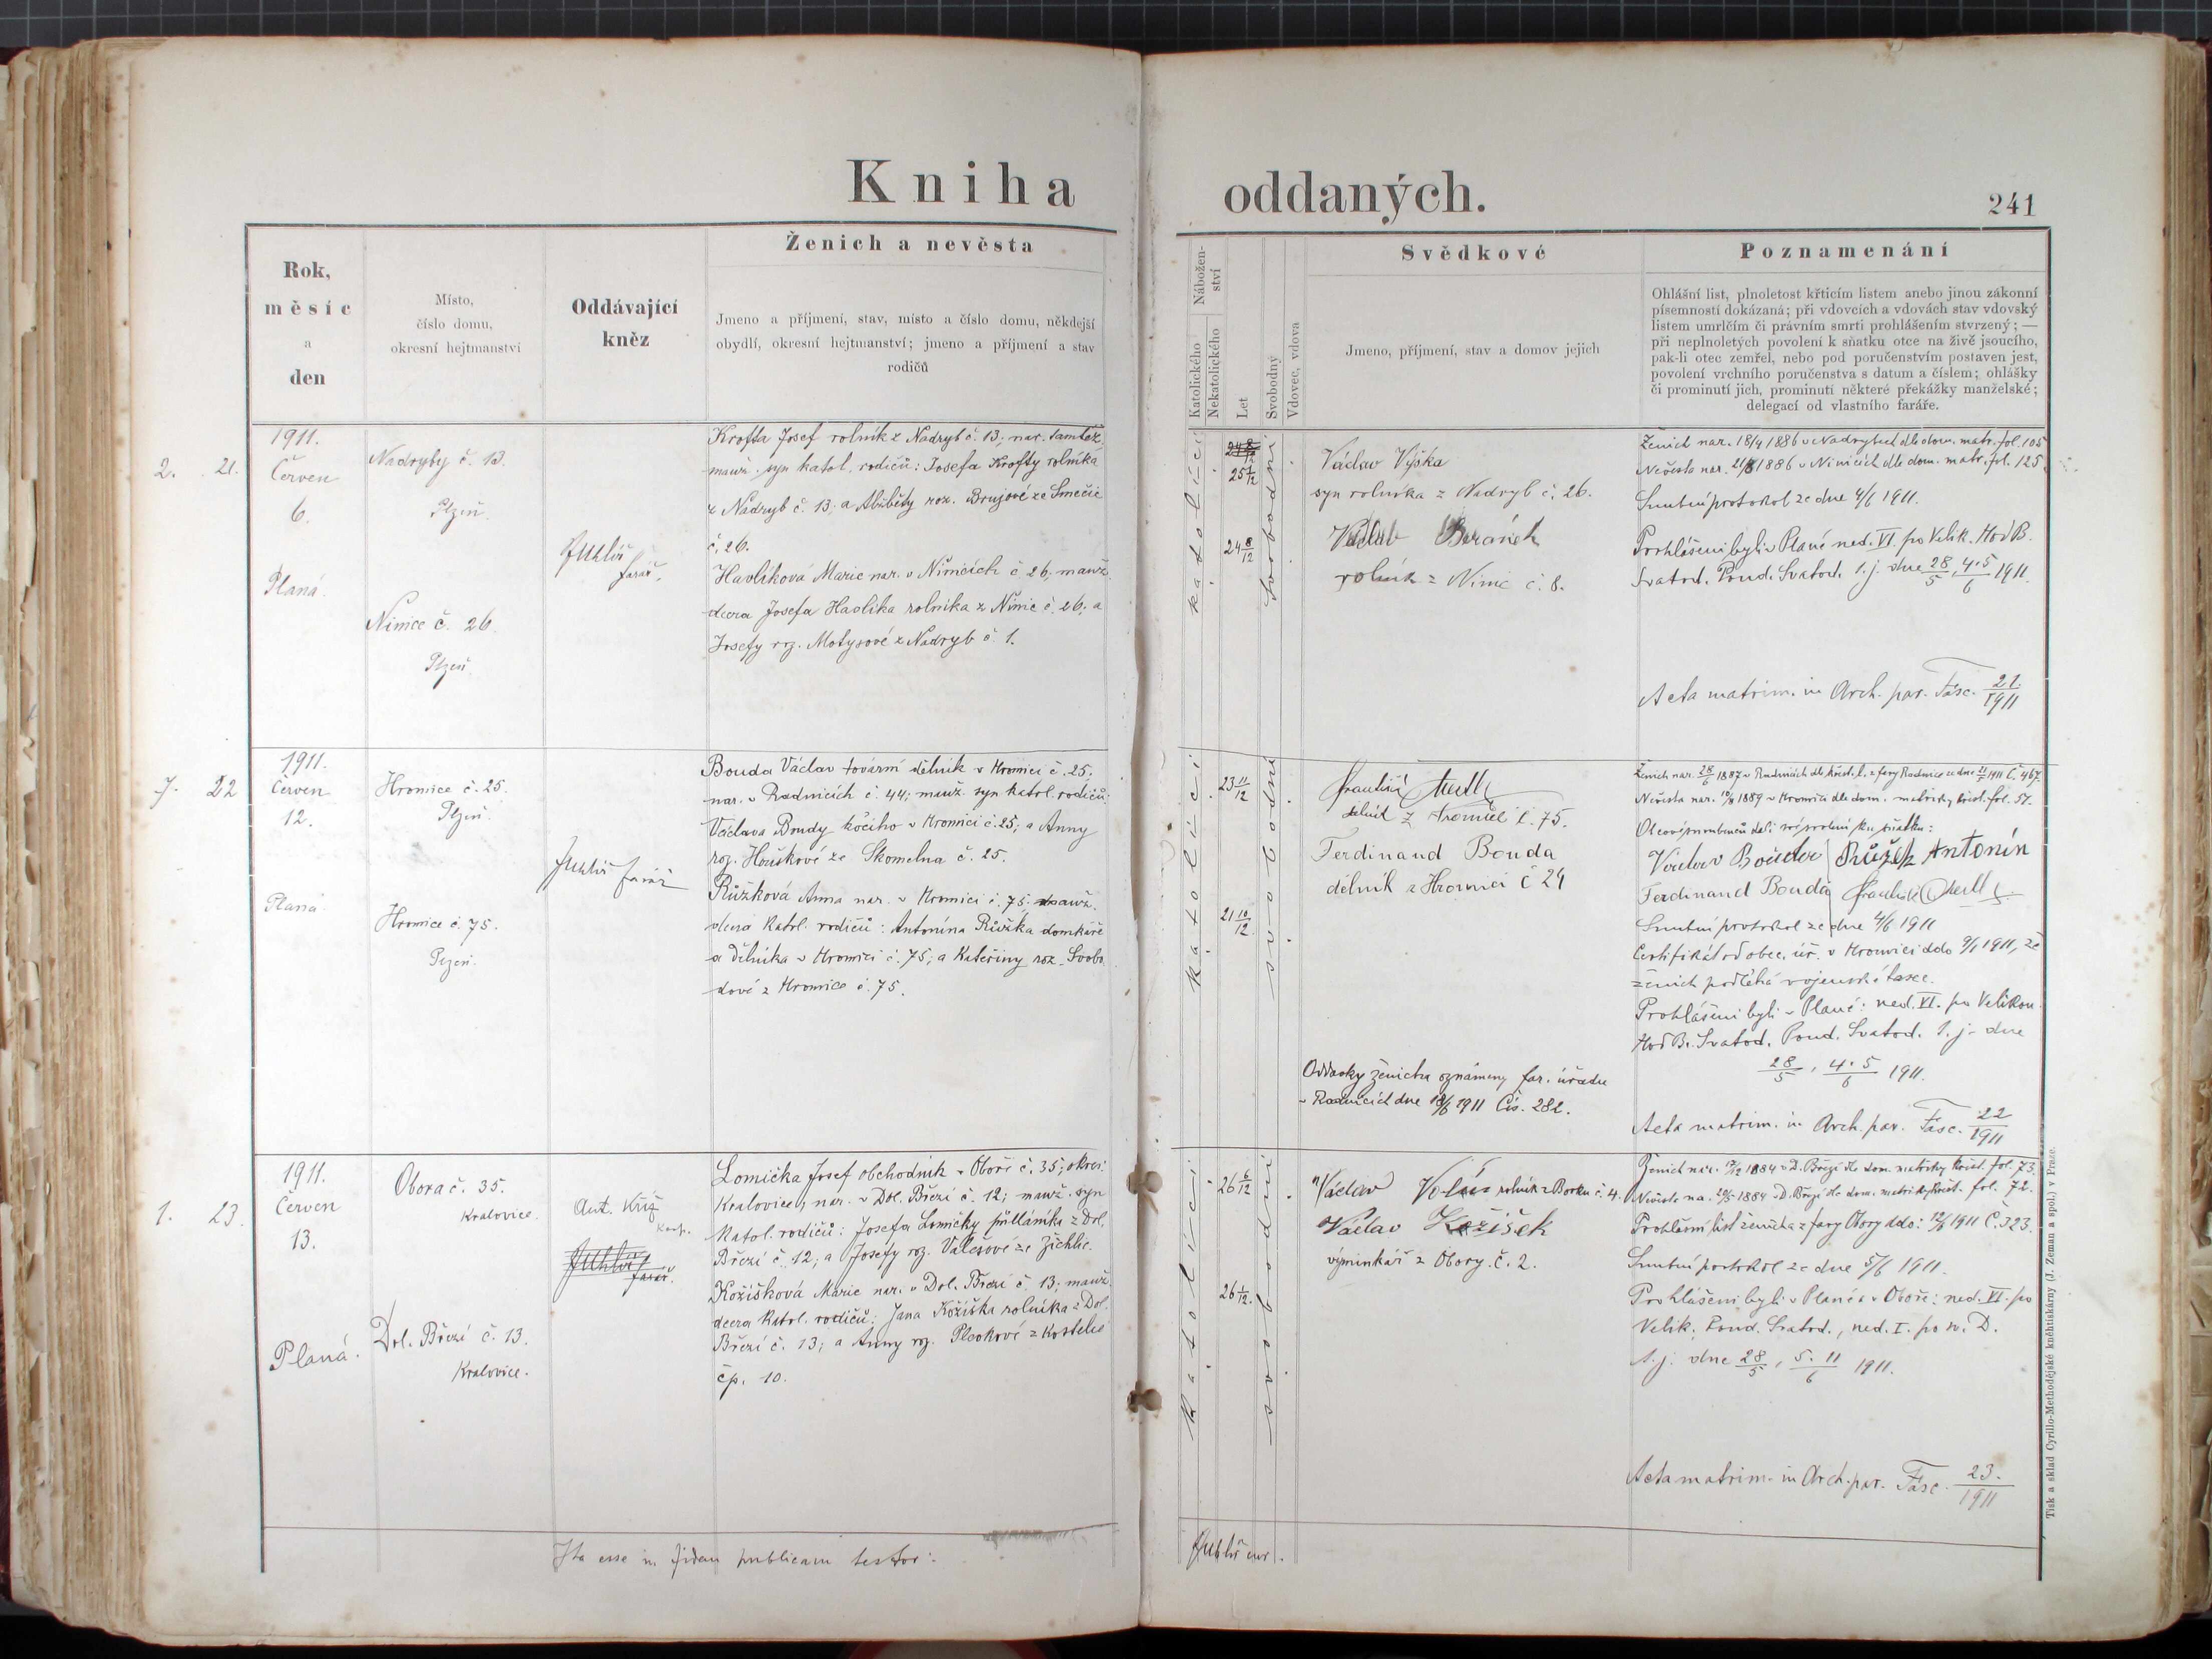 Kniha oddaných.
241
Rok,
měsíc
a
den
Místo,
číslo domu,
okresní hejtmanství
Oddávající
kněz
Ženich a nevěsta
Jmeno a příjmení, stav, místo a číslo domu, někdejší
obydlí, okresní hejtmanství; jmeno a příjmení a stav
rodičů
Nábožen-
ství
Katolického
Nekatolického
Let
Svobodný
Vdovec, vdova
Svědkové
Jmeno, příjmení, stav a domov jejich
Poznamenání
Ohlášní list, plnoletost křticím listem anebo jinou zákonní
písemností dokázaná; při vdovcích a vdovách stav vdovský
listem umrlčím či právním smrti prohlášením stvrzený; —
při neplnoletých povolení k sňatku otce na živě jsoucího,
pak-li otec zemřel, nebo pod poručenstvím postaven jest,
povolení vrchního poručenstva s datum a číslem; ohlášky
či prominutí jich, prominutí některé překážky manželské;
delegací od vlastního faráře.
2. 21.
1911.
Červen
6.
Planá.
Nadryby č. 13.
Plzeň.
Nimce č. 26.
Plzeň.
farář.
Krofta Josef rolník z Nadryb č. 13; nar. tamtéž,
manž. syn katol. rodičů: Josefa Krofty rolníka
z Nadryb č. 13; a Alžběty roz. Brujové ze Smečic
č. 26.
Havlíková Marie nar. v Nimcích č. 26; manž.
dcera Josefa Havlíka rolníka z Nimic č. 26; a
Josefy roz. Motysové z Nadryb č. 1.
katolíci
25 1/12
24 8/12
svobodní
Václav Výška
syn rolníka z Nadryb č. 26.
Václav Beránek
rolník z Nimic č. 8.
Ženich nar. 18/4 1886 v Nadrybech dle dom. matr. fol. 105
Nevěsta nar. 1886 v Nimicích dle dom. matr. fol. 125.
Smluvní protokol ze dne 4/6 1911.
Prohlášeni byli v Plané ned. VI. po Velik. Hod B.
Svatod. Pond. Svatod. t. j. dne 28/5, 4. 5/6 1911.
Acta matrim. in Arch. par. Fasc. 21./1911
7. 22
1911.
Červen
12.
Planá.
Hromice č. 25.
Plzeň.
Hromice č. 75.
Plzeň.
farář
Bouda Václav tovární dělník v Hromici č. 25;
nar. v Radnicích č. 44; manž. syn katol. rodičů:
Václava Boudy kočího v Hromici č. 25; a Anny
roz. Houškové ze Skomelna č. 25.
Růžková Anna nar. v Hromici č. 75. manž.
dcera katol. rodičů: Antonína Růžka domkáře
a dělníka v Hromici č. 75; a Kateřiny roz. Svobo
dové z Hromice č. 75.
katolíci
23 11/12
21 10/12
svobodní
František
dělník z Hromice č. 75.
Ferdinand Bouda
dělník z Hromici č 24
Oddavky ženicha oznámeny far. úřadu
v Radnicích dne 12/6 1911 Čís. 282.
Ženich nar. 28/6 1887 v Radnicích dle křest. l. z fary Radnice ze dne 1911 Č. 467.
Nevěsta nar. 1889 v Hromici dle dom. matriky křest. fol. 57.
Otcové snoubenců dali své svolení ku sňatku:
Václav Bouda Růžek Antonín
Ferdinand Bouda František
Smluvní protokol ze dne 4/6 1911
Certifikát od obec. úř. v Hromici ddo 9/1 1911, že
ženich podléhá vojenské taxe.
Prohlášeni byli v Plané: ned. VI. po Velikon.
Hod B. Svatod. Pond. Svatod. t. j. dne
28/5, 4. 5/6 1911.
Acta matrim. in Arch. par. Fasc. 22/1911
1. 23.
1911.
Červen
13.
Planá.
Obora č. 35.
Kralovice.
Dol. Březí č. 13.
Kralovice.
Ant. Kříž
farář.
Lomička Josef obchodník v Oboře č. 35; okres:
Kralovice; nar. v Dol. Březí č. 12; manž. syn
katol. rodičů: Josefa Lomičky půlláníka z Dol.
Březí č. 12; a Josefy roz. Valešové ze Žichlic.
Kožíšková Marie nar. v Dol. Březí č. 13; manž.
dcera katol. rodičů: Jana Kožíška rolníka z Dol.
Březí č. 13; a Anny roz. Plockové z Kostelce
čp. 10.
katolíci
26 6/12
26 1/12.
svobodní
Václav rolník z Borku č. 4.
Václav Kožíšek
výminkář z Obory č. 2.
Ženich nar. 1884 v D. Březí dle dom. matriky křest. fol. 73.
Nevěsta na. 1884 v D. Březí dle dom. matriky křest. fol. 72.
Prohlášní list ženicha z fary Obory ddo: 12/6 1911 Č. 323.
Smluvní protokol ze dne 5/6 1911.
Prohlášeni byli v Plané a v Oboře: ned. VI. po
Velik. Pond. Svatod., ned. I. po sv. D.
t. j. dne 28/5, 5. 11/6 1911.
Acta matrim. in Arch. par. Fasc. 23./1911
Ita esse in fidem publicam testor:
Tisk a sklad Cyrillo-Methodějské knihtiskárny (J. Zeman a spol.) v Praze.